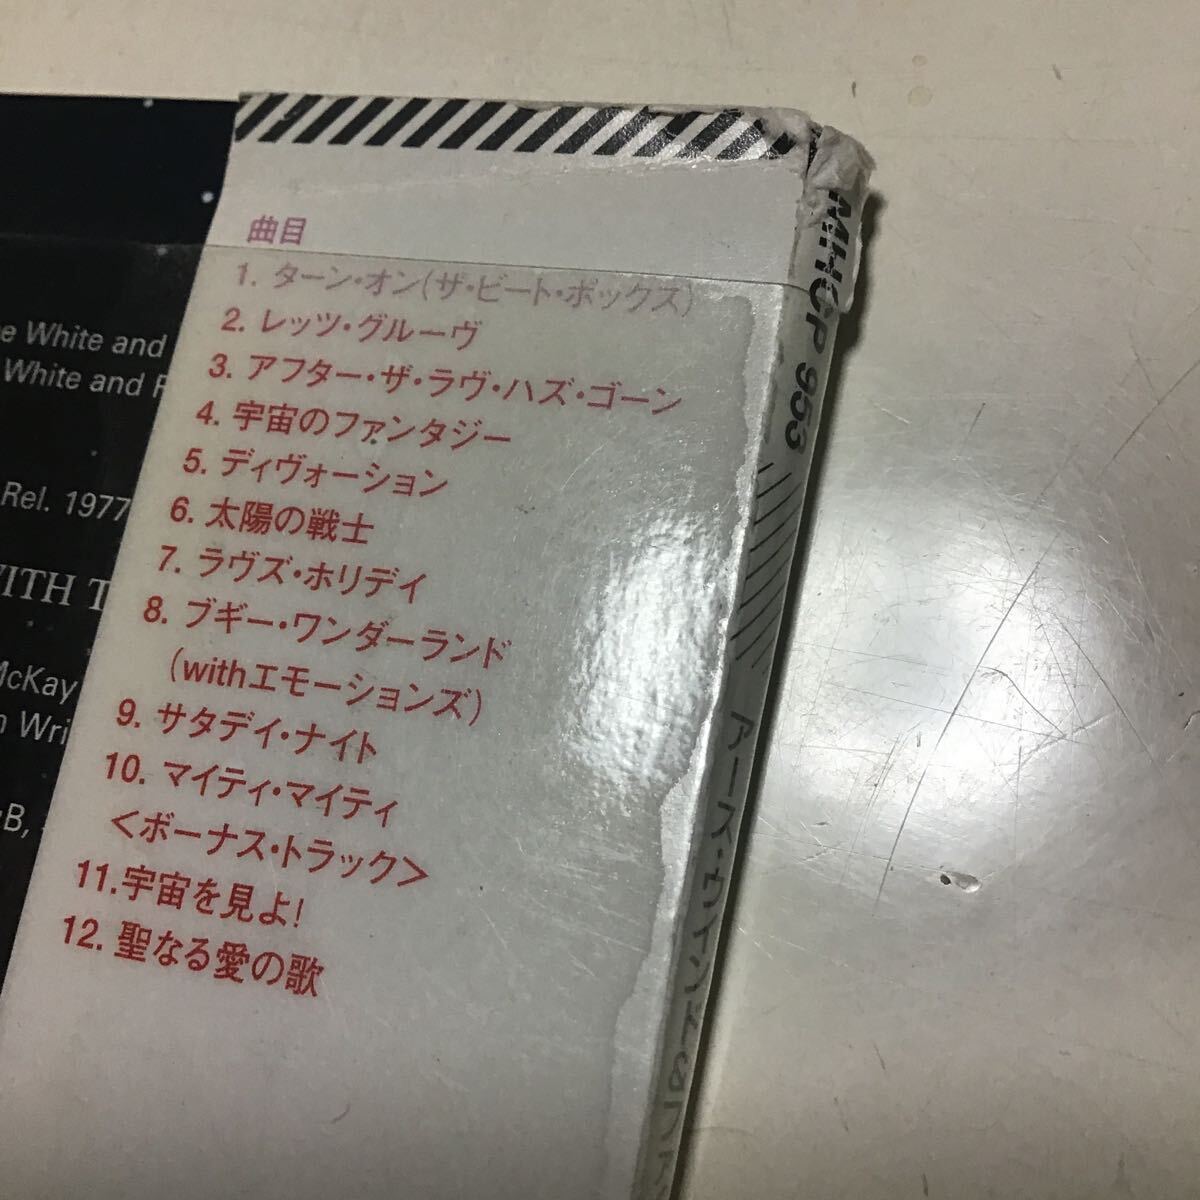 曲目
1. ターン・オン(ザ・ビート・ボックス)
2. レッツ・グルーヴ
3. アフター・ザ・ラヴ・ハズ・ゴーン
4. 宇宙のファンタジー
5. ディヴォーション
6. 太陽の戦士
7. ラヴズ・ホリデイ
8. ブギー・ワンダーランド
(withエモーションズ)
9. サタデイ・ナイト
10. マイティ・マイティ
<ボーナス・トラック>
11.宇宙を見よ!
12. 聖なる愛の歌
White and
White and
Rel. 1977
WITH
McKay
MHCP 953